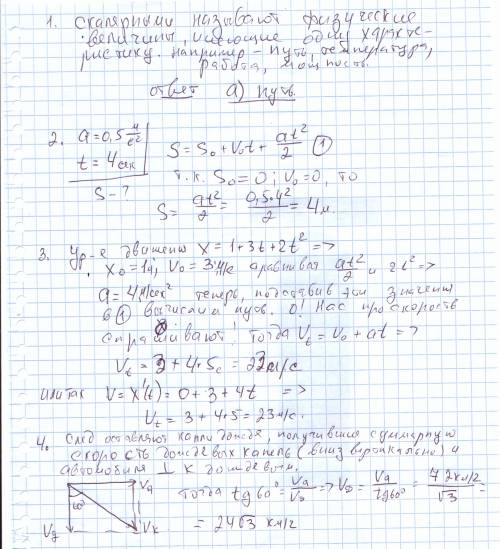 1. Скалярными называют физические
величины, имеющие одну характе-
ристику. например - путь, температура,
работа, мощность.
ответ а) путь.
2. a = 0,5 м/с²
t = 4 сек
S - ?
S = S₀ + V₀t + at²/2 ①
т.к. S₀ = 0; V₀ = 0, то
S = at²/2 = 0,5·4²/2 = 4 м.
3. Ур-е движения X = 1+3t+2t² =>
X₀ = 1м; V₀ = 3м/с сравнивая at²/2 и 2t² =>
a = 4м/сек² теперь, подставив эти значения
в ① вычислим путь. О! Нас про скорость
спрашивают! Тогда Vt = V₀ + at =>
Vt = 3 + 4·5c = 23м/с
или так V = X'(t) = 0 + 3 + 4t =>
Vt = 3 + 4·5 = 23м/с.
4. След оставляют капли дождя, получившие суммарную
скорость дождевых капель (вниз вертикально) и
автомобиля ⊥ к дождевым.
60° Vа Vд Vк
Тогда tg60° = Vа/Vд => Vд = Vа/tg60° = 72км/ч/√3 =
= 24√3 км/ч